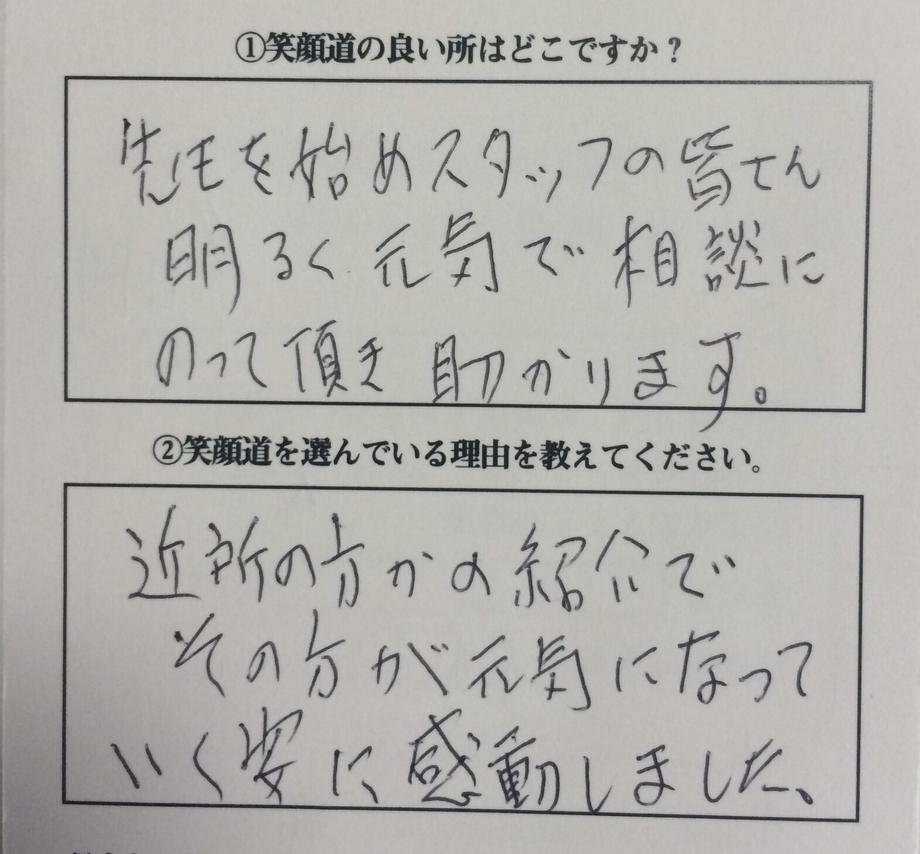 ①笑顔道の良い所はどこですか？
先生を始めスタッフの皆さん
明るく元気で相談に
のって頂き助かります。
②笑顔道を選んでいる理由を教えてください。
近所の方かの紹介で
その方が元気になって
いく姿に感動しました、